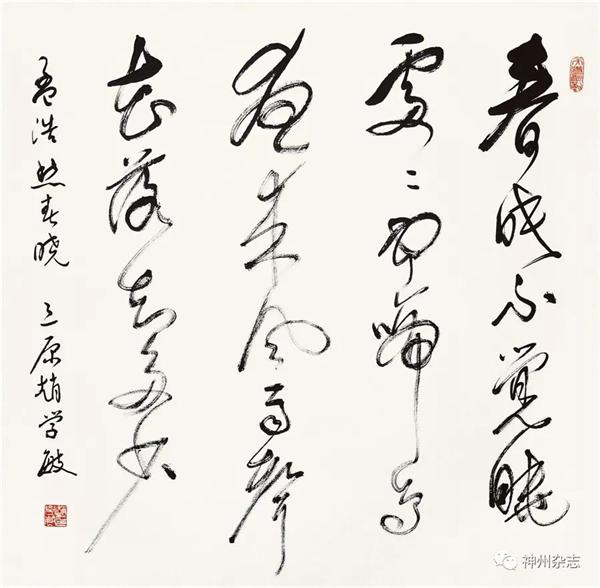 春眠不觉晓
處々闻啼鸟
夜来风雨聲
花落知多少
孟浩然春晓 三原趙学敏
神州杂志